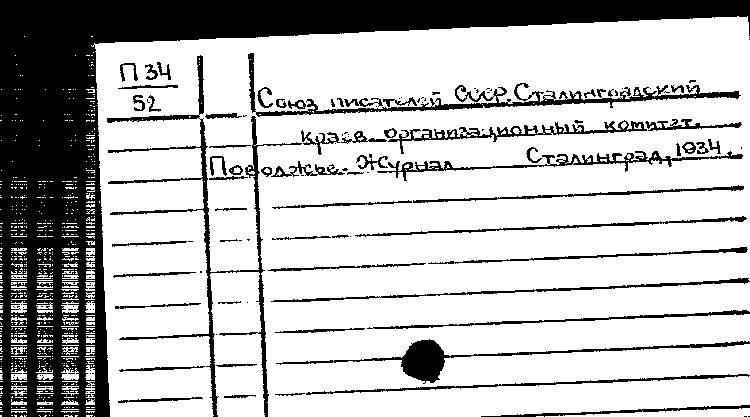 П 34
52
Союз писателей СССР. Сталинградский
краев. организационный комитет.
Поволжье. Журнал Сталинград, 1934.